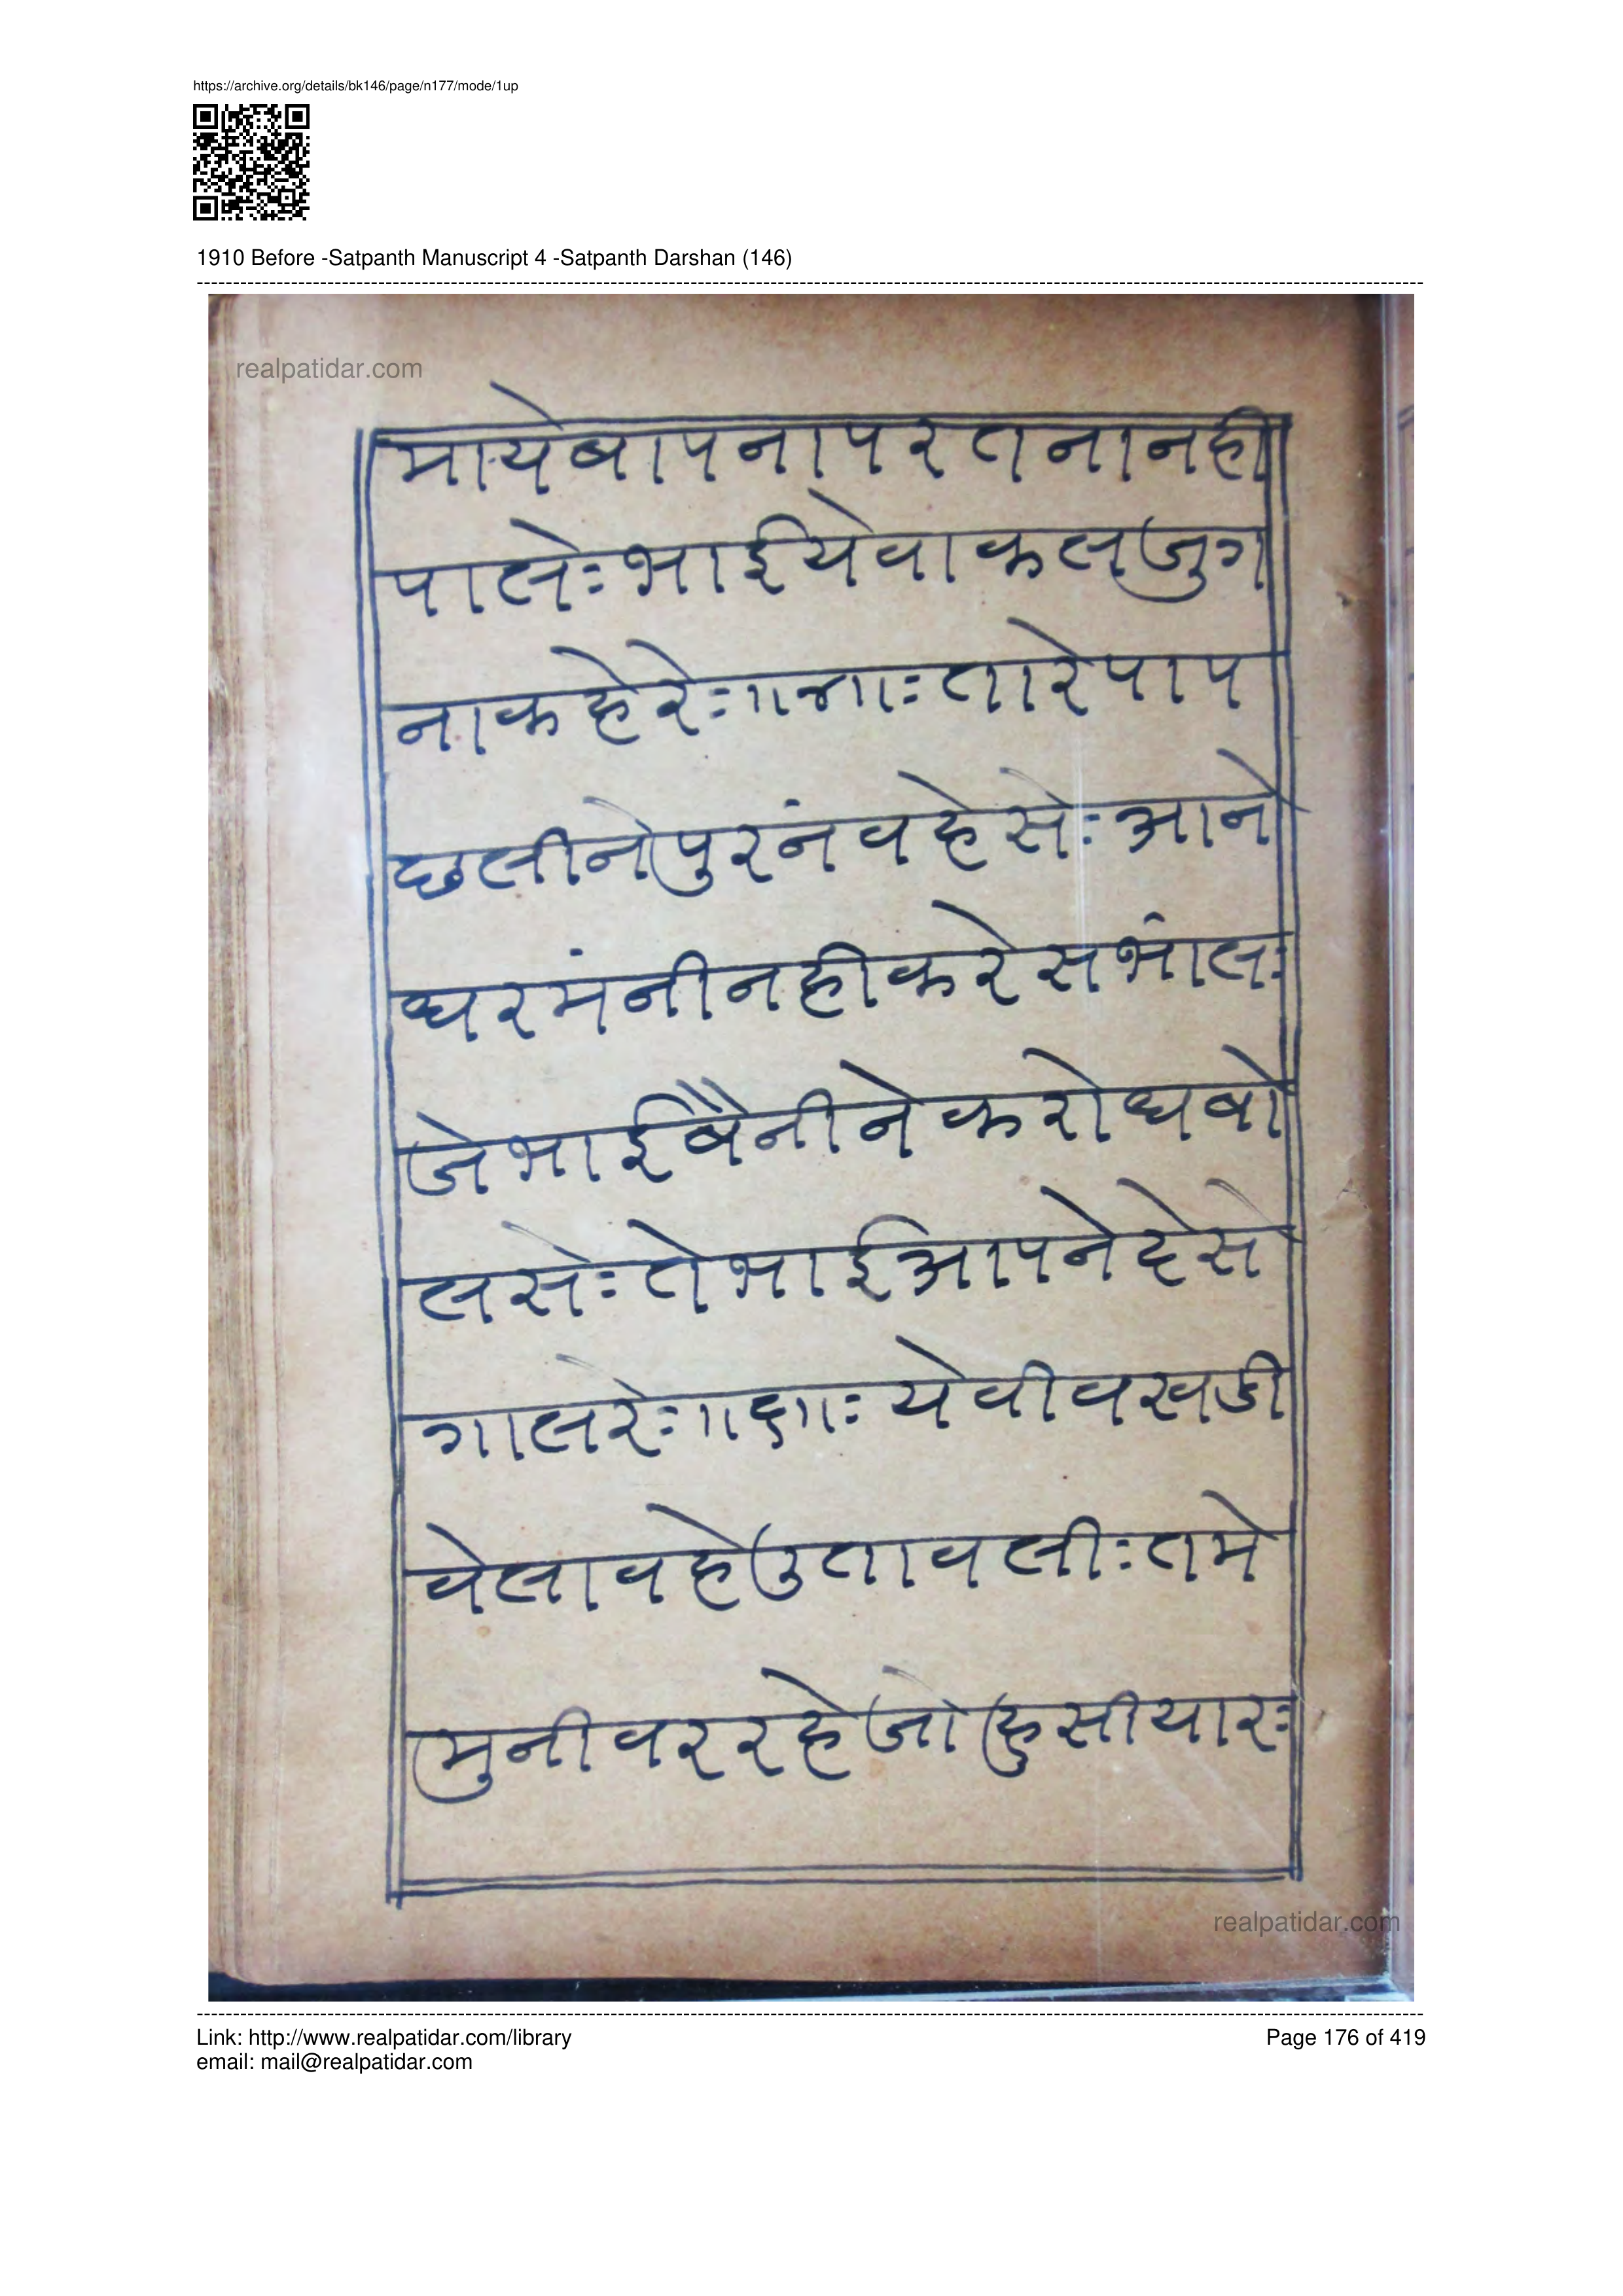 https://archive.org/details/bk146/page/n177/mode/1up
1910 Before -Satpanth Manuscript 4 -Satpanth Darshan (146)
realpatidar.com
मायेबापनापरतनानही
पालेः भाईयेवाकलजुग
नाकहेरेः॥४॥ः तारेपाप
छलीनेपुरनंवहेसेः आने
धरमंनीनहीकरेसभांलः
जेभाईबैनीनेकरोधबो
लसेः तेभाईआपनेदेसे
गालरेः॥५॥ः येवीवखडी
वेलावहेउतावलीः तमे
मुनीवररहेजोहुसीयारः
realpatidar.com
Link: http://www.realpatidar.com/library
Page 176 of 419
email: mail@realpatidar.com